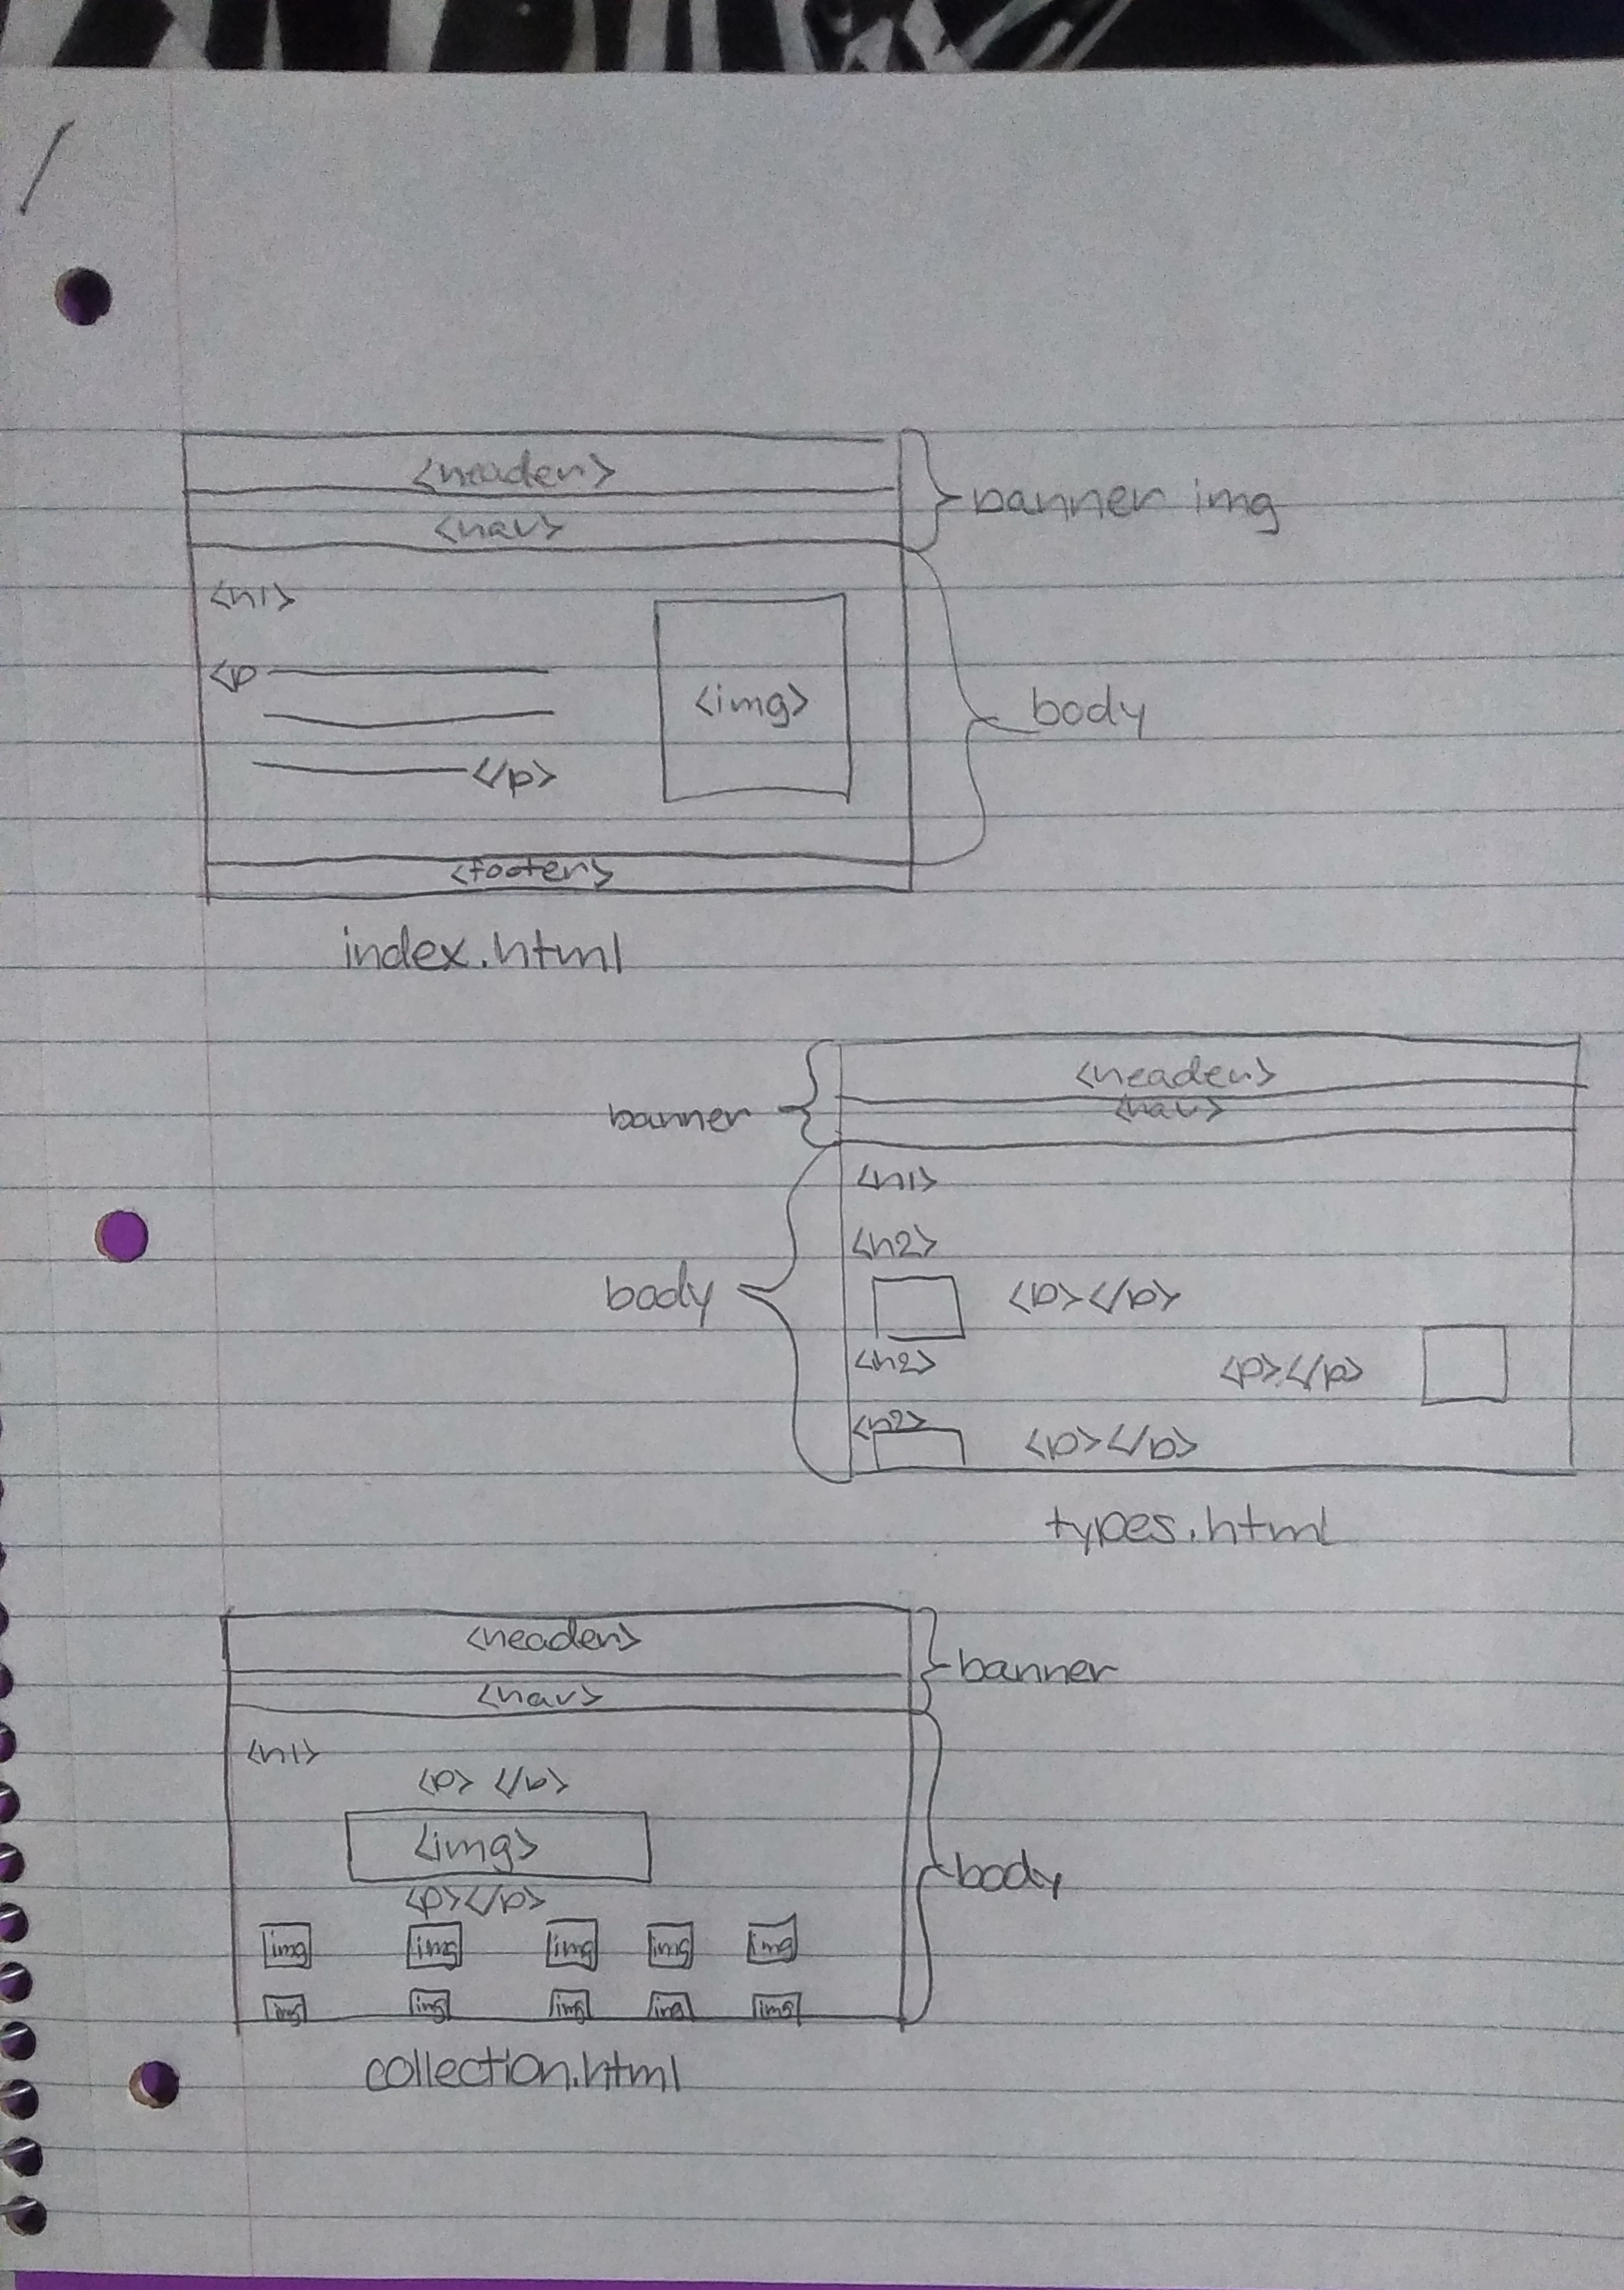 <header>
banner img
<nav>
<h1>
<p
<img>
body
</p>
<footer>
index.html
<header>
banner
<nav>
<h1>
<h2>
body
<p></p>
<h2>
<p></p>
<h2>
<p></p>
types.html
<header>
banner
<nav>
<h1>
<p> </p>
<img>
body
<p></p>
img img img img img
img img img img img
collection.html